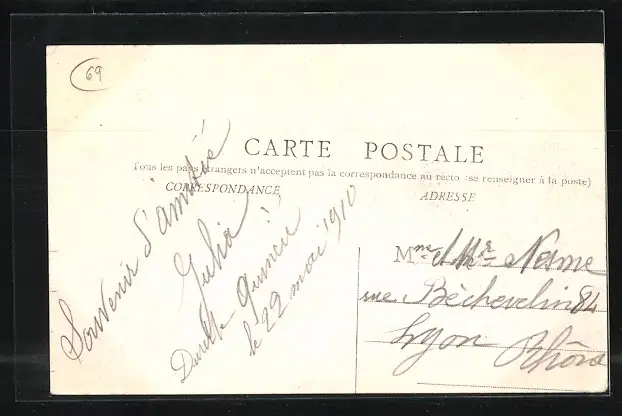 69
CARTE POSTALE
Tous les pays étrangers n'acceptent pas la correspondance au recto (se renseigner à la poste)
CORRESPONDANCE
ADRESSE
Souvenir d'amitié
Julia
Quincié
le 22 mai 1910
Mme et Mr Nesme
rue Béchevelin 84
Lyon Rhône